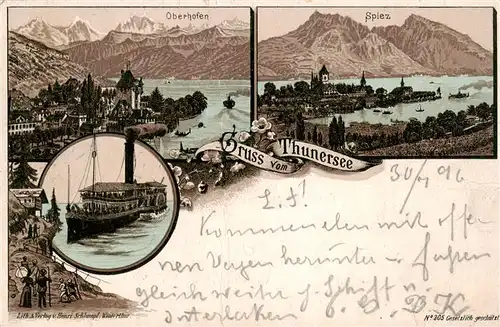 Oberhofen
Spiez
Gruss vom Thunersee
30/7 96
L. F.!
Kommen eben mit offe-
nen Augen herunter – fahren
gleich weiter p. Schiff n.
Interlaken
Lith. & Verlag v. Henri Schlumpf, Winterthur
Nº 205 Gesetzlich geschützt